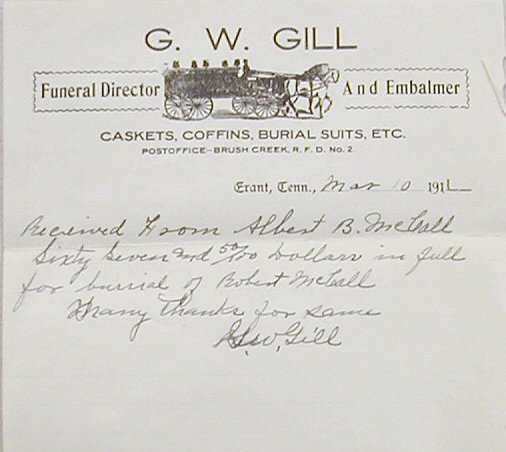 G. W. GILL
Funeral Director And Embalmer
CASKETS, COFFINS, BURIAL SUITS, ETC.
POSTOFFICE-BRUSH CREEK, R. F. D. No. 2
Erant, Tenn., Mar 10 1911
Received From Albert B. McCall
Sixty Seven and 50/00 Dollars in full
for burial of Robert McCall
Many Thanks for same
G. W. Gill